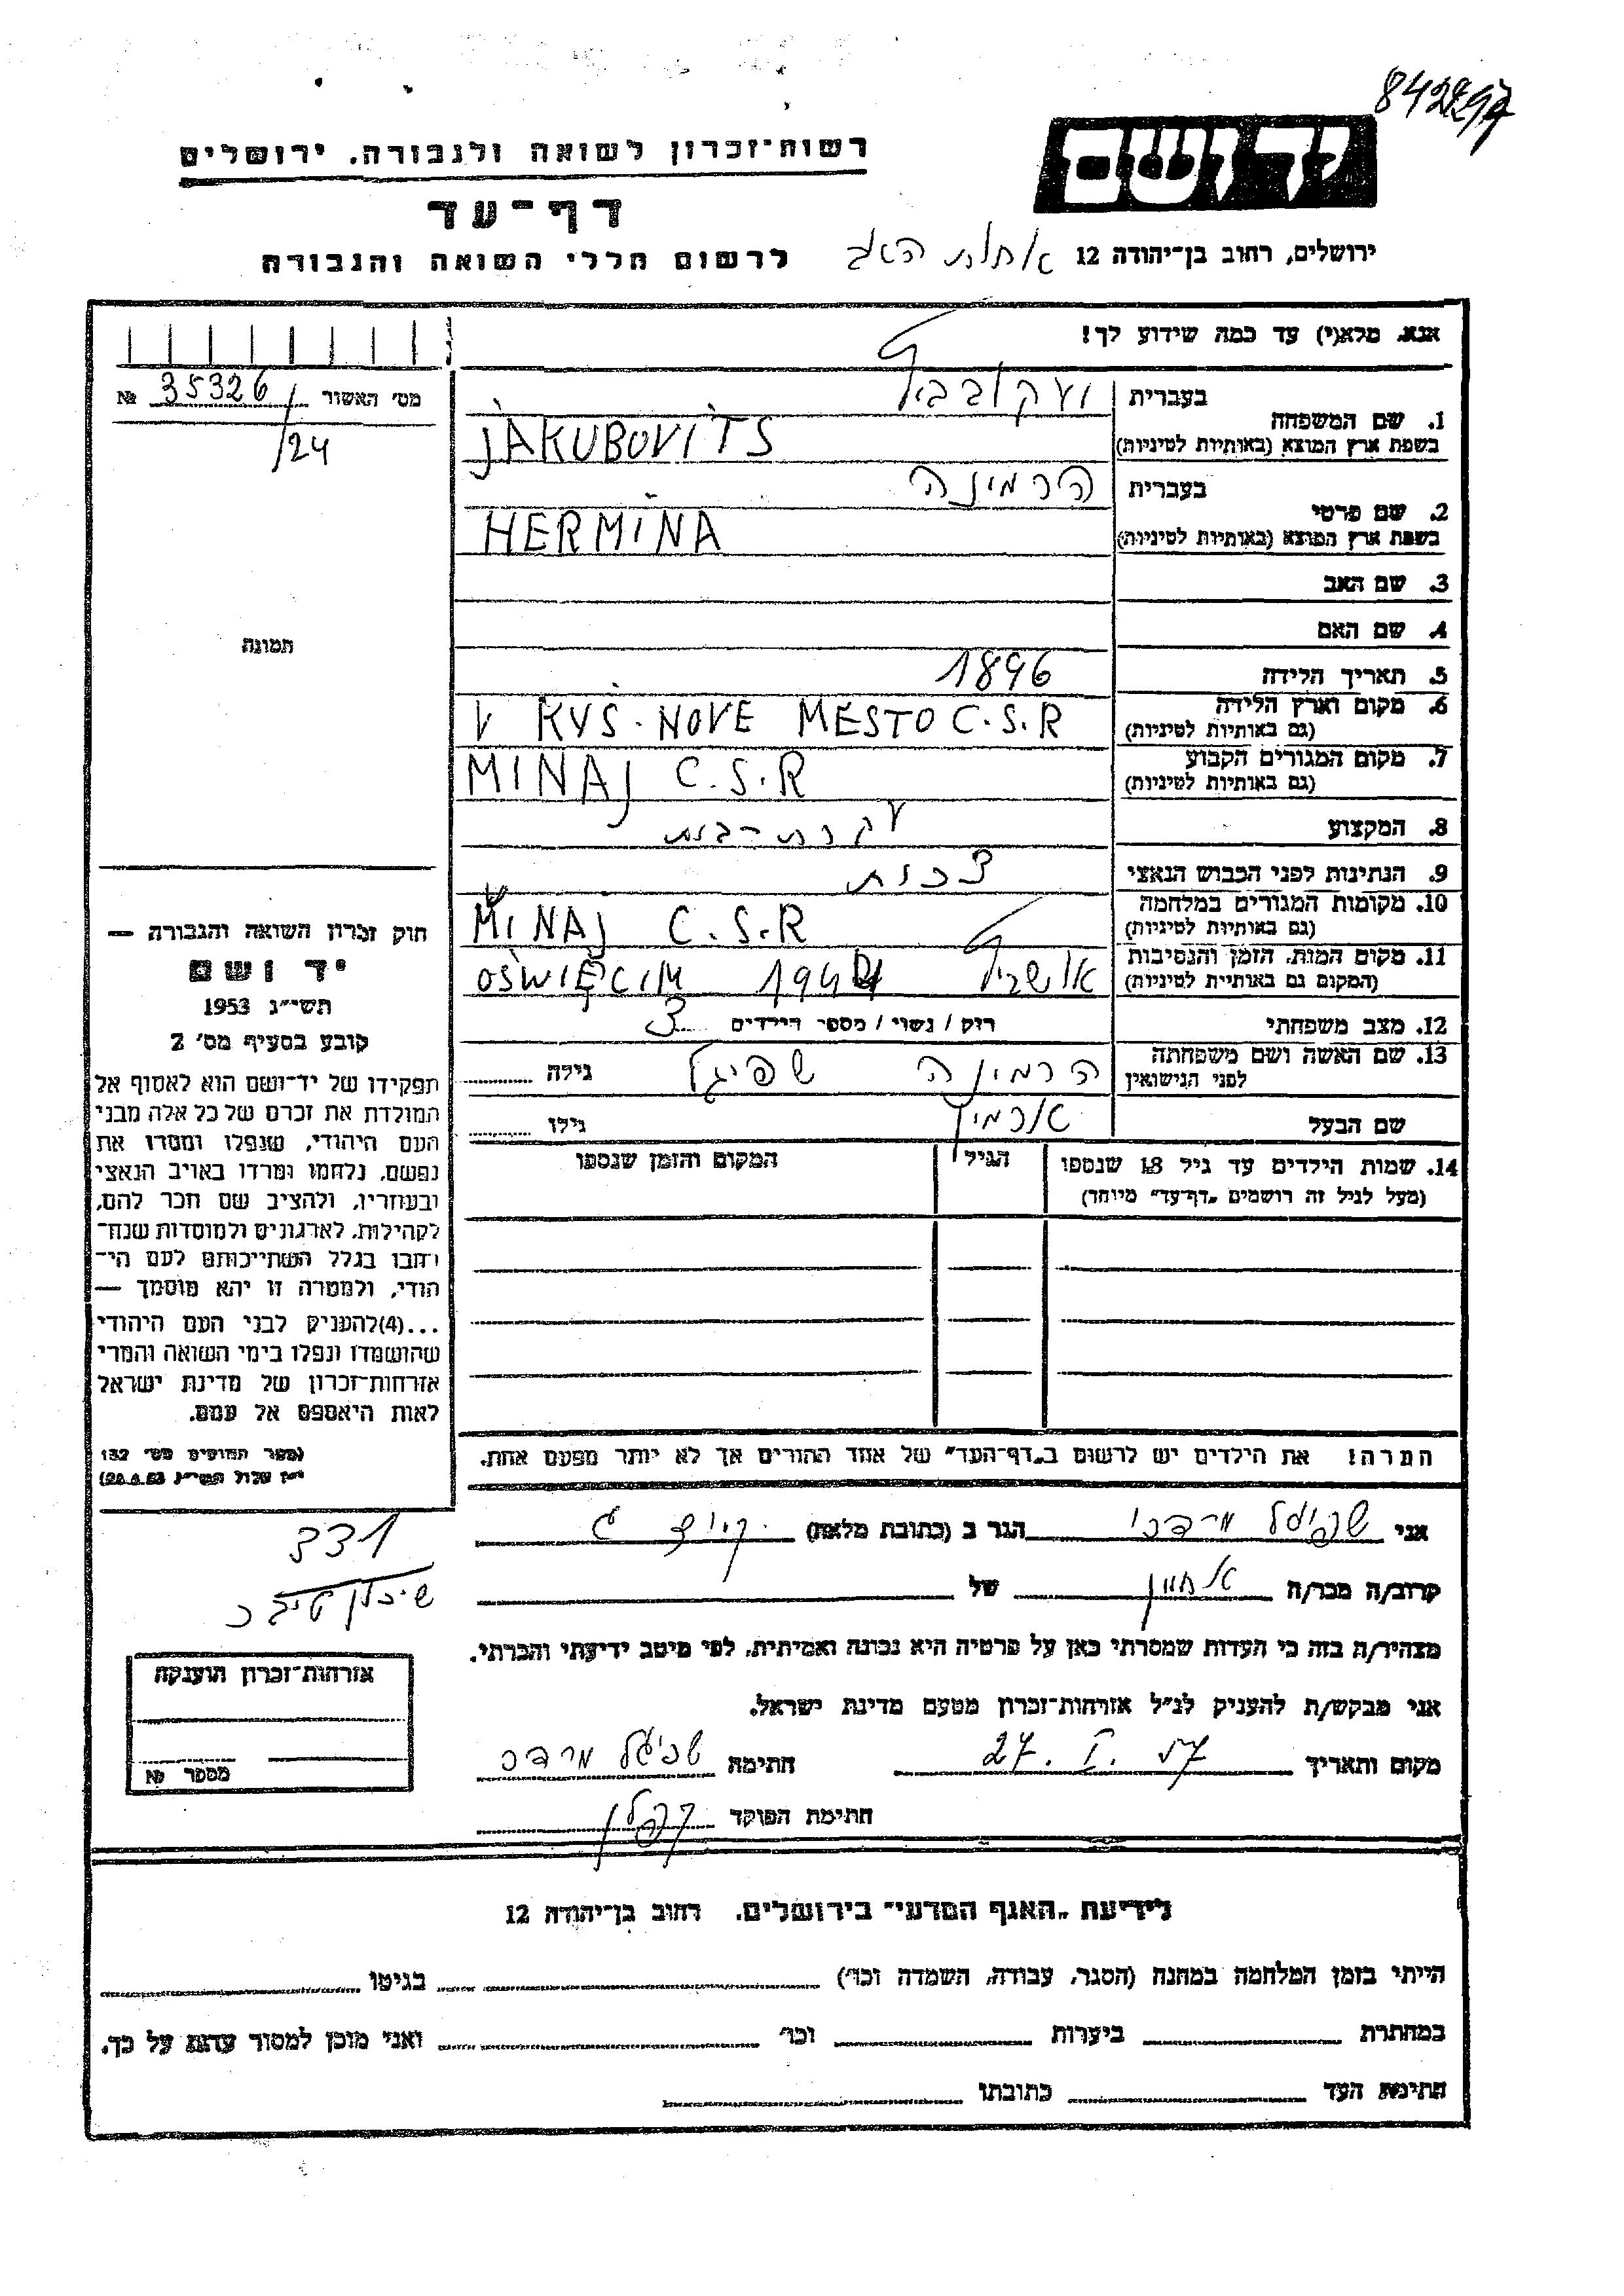 רשות־זכרון לשואה ולגבורה, ירושלים
יד ושם
דף־עד
ירושלים, רחוב בן־יהודה 12
לרשום חללי השואה והגבורה
אנא, מלא(י) עד כמה שידוע לך!
מס׳ האשור 35326 №
/24
1. שם המשפחה
בעברית יעקובביץ
בשפת ארץ המוצא (באותיות לטיניות) JAKUBOVITS
2. שם פרטי
בעברית הרמינה
בשפת ארץ המוצא (באותיות לטיניות) HERMINA
3. שם האב
4. שם האם
תמונה
5. תאריך הלידה 1896
6. מקום וארץ הלידה
(גם באותיות לטיניות) V KYS. NOVE MESTO C.S.R
7. מקום המגורים הקבוע
(גם באותיות לטיניות) MINAJ C.S.R
8. המקצוע עקרת-בית
9. הנתינות לפני הכבוש הנאצי צכית
10. מקומות המגורים במלחמה
(גם באותיות לטיניות) MINAJ C.S.R
11. מקום המות, הזמן והנסיבות
(המקום גם באותיות לטיניות) אושביץ 1944 OŚWIĘCIM
12. מצב משפחתי רוק / נשוי / מספר הילדים 3
13. שם האשה ושם משפחתה
לפני הנישואין הרמינה שפיגל גילה
שם הבעל ארמין גילו
14. שמות הילדים עד גיל 18 שנספו
(מעל לגיל זה רושמים „דף־עד״ מיוחד)
הגיל
המקום והזמן שנספו
חוק זכרון השואה והגבורה —
יד ושם
תשי״ג 1953
קובע בסעיף מס׳ 2
תפקידו של יד־ושם הוא לאסוף אל
המולדת את זכרם של כל אלה מבני
העם היהודי, שנפלו ומסרו את
נפשם, נלחמו ומרדו באויב הנאצי
ובעוזריו, ולהציב שם וזכר להם,
לקהילות, לארגונים ולמוסדות שנח־
רבו בגלל השתייכותם לעם הי־
הודי, ולמטרה זו יהא מוסמך —
...(4) להעניק לבני העם היהודי
שהושמדו ונפלו בימי השואה והמרי
אזרחות־זכרון של מדינת ישראל
לאות היאספם אל עמם.
(ספר החוקים מס׳ 132
י״ז אלול תשי״ג 28.8.53)
הערה! את הילדים יש לרשום ב„דף־העד״ של אחד ההורים אך לא יותר מפעם אחת.
אני שפיגל מרדכי הגר ב (כתובת מלאה)
331
קרוב/ה מכר/ה של
מצהיר/ה בזה כי העדות שמסרתי כאן על פרטיה היא נכונה ואמיתית, לפי מיטב ידיעתי והכרתי.
אני מבקש/ת להעניק לנ״ל אזרחות־זכרון מטעם מדינת ישראל.
מקום ותאריך 27. I. 57 חתימה שפיגל מרדכי
חתימת הפוקד קפלן
אזרחות־זכרון הוענקה
מספר №
לידיעת „האגף המדעי״ בירושלים, רחוב בן־יהודה 12
הייתי בזמן המלחמה במחנה (הסגר, עבודה, השמדה וכו׳) בגיטו
במחתרת ביערות וכו׳ ואני מוכן למסור עדות על כך.
חתימת העד כתובתו